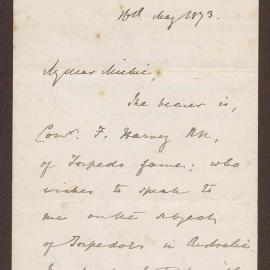 16th May 1873.
My dear Michie,
The bearer is,
Com. F. Harvey RN,
of Torpedo fame; who
wishes to speak to
me on the subject
of Torpedoes in Australia